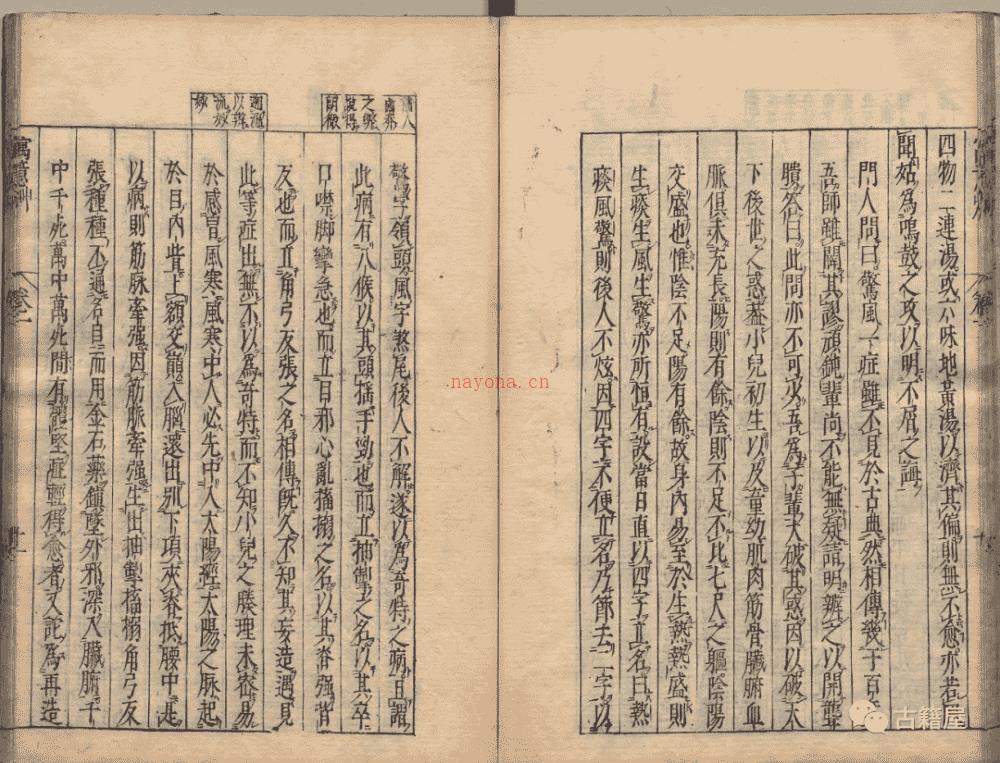 四物二連湯或六味地黃湯以濟其偏則無不愈亦若
聞姑為鳴鼓之攻以明不屑之誨
門人問曰驚風一症雖不見於古典然相傳幾千百
吾師雖闢其謬頑鈍輩尚不能無疑請明辨之以開聾
瞶答曰此問亦不可少吾為子輩大破其惑因以破天
下後世之惑蓋小兒初生以及童幼肌肉筋骨臟腑血
脈俱未充長陽則有餘陰則不足不比七尺之軀陰陽
交盛也惟陰不足陽有餘故身內易至於生熱熱盛則
生痰生風生驚亦所恒有設當日直以四字立名曰熱
痰風驚則後人不炫因四字不便立名乃節去二字以
之弊
說得
朗徹
驚字領頭風字煞尾後人不解遂以為奇特之病且謂
此病有八候以其頭搖手動也而立抽掣之名以其卒
口噤脚攣急也而立目邪心亂搐搦之名以其脊強背
反也而立角弓反張之名相傳既久不知其妄造遇見
此等症出無不以為奇特而不知小兒之腠理未密易
於感冒風寒風寒中人必先中入太陽經太陽之脉起
於目內眥上額交巔入腦還出別下項夾脊抵腰中是
以病則筋脉牽強因筋脈牽強生出抽掣搐搦角弓反
張種種不通名目而用金石藥鎮墜外邪深入臟腑千
中千死萬中萬死間有體堅症輕得愈者又詫為再造
寓意艸
nayona.cn
古籍屋